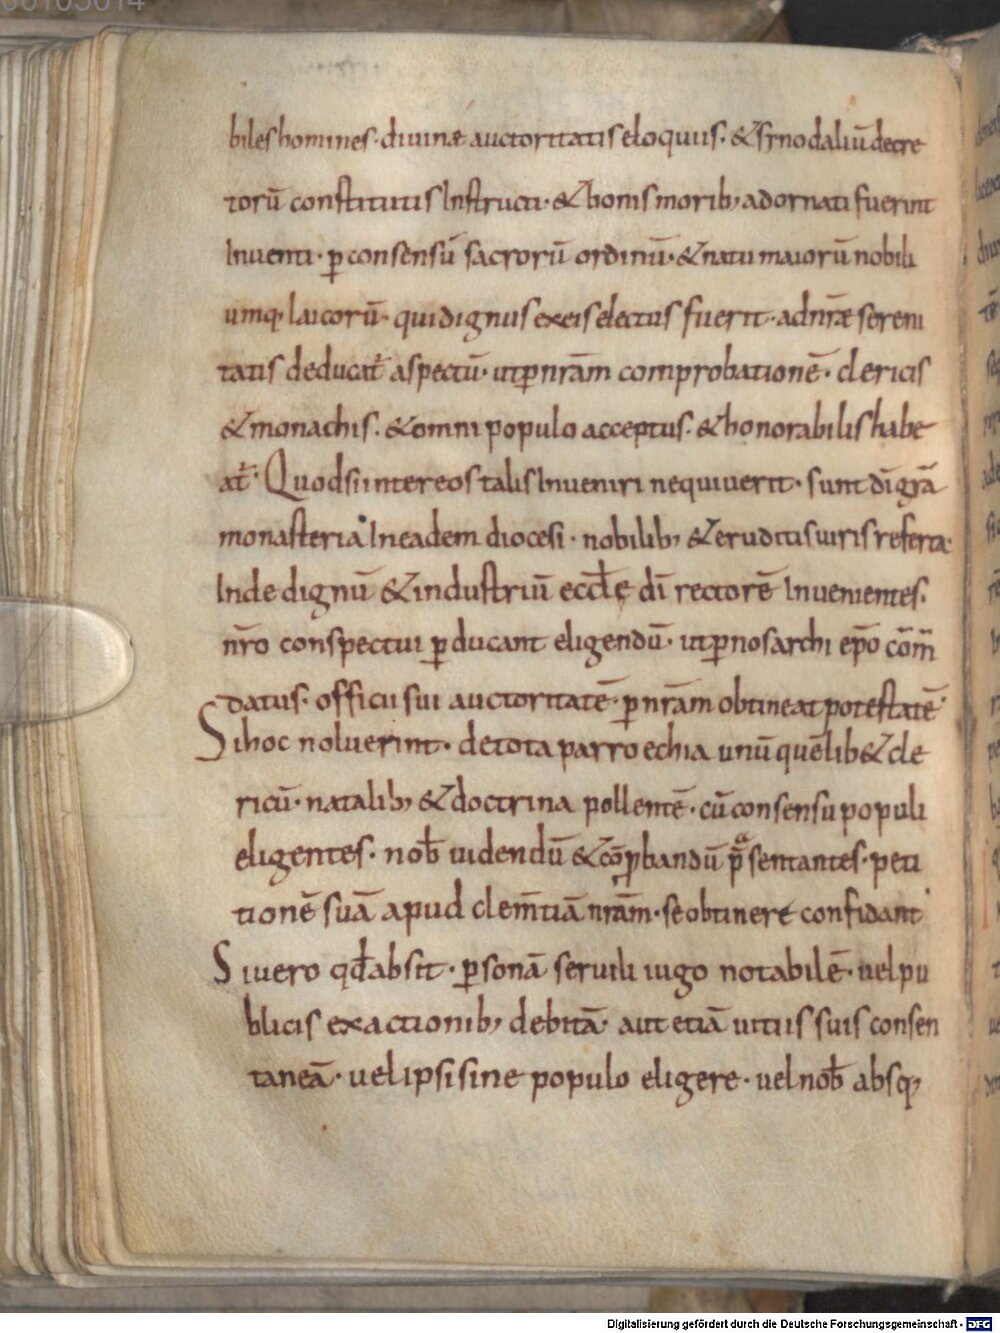 biles homines · divinæ auctoritatis eloquiis · & synodaliū decre
torū constitutis Instructi · & bonis morib; adornati fuerint
Inventi · p̱ consensū sacrorū ordinū · & natu maiorū nobili
umq; laicorū · qui dignus ex eis electus fuerit · ad nr̄æ sereni
tatis deducat̄ aspectū · ut p̱ nr̄am comprobationē · clericis
& monachis · & omni populo acceptus · & honorabilis habe
at̄ · Quod si inter eos talis Inveniri nequiverit · sunt dī gr̄a
monasteria In eadem diocesi · nobilib; & eruditis viris referta
Inde dignū & industriū eccl̄ę dī rectorē Invenientes ·
nr̄o conspectui p̱ducant eligendū · ut p̱ nos archi ep̄o cōm̄
datus · officii sui auctoritatē · p̱ nr̄am obtineat potestatē
Si hoc noluerint · de tota parroechia unū quēlib& cle
ricū · natalib; & doctrina pollentē · cū consensu populi
eligentes · nob̄ videndū & cōp̱bandū p̄sentantes · peti
tionē suā apud clem̄tiā nr̄am · se obtinere confidant
Si vero qd̄ absit · p̱sonā servili iugo notabilē · vel pu
blicis exactionib; debitā · aut etiā vitiis suis consen
taneā · vel ipsi sine populo eligere · vel nob̄ absq;
Digitalisierung gefördert durch die Deutsche Forschungsgemeinschaft - DFG